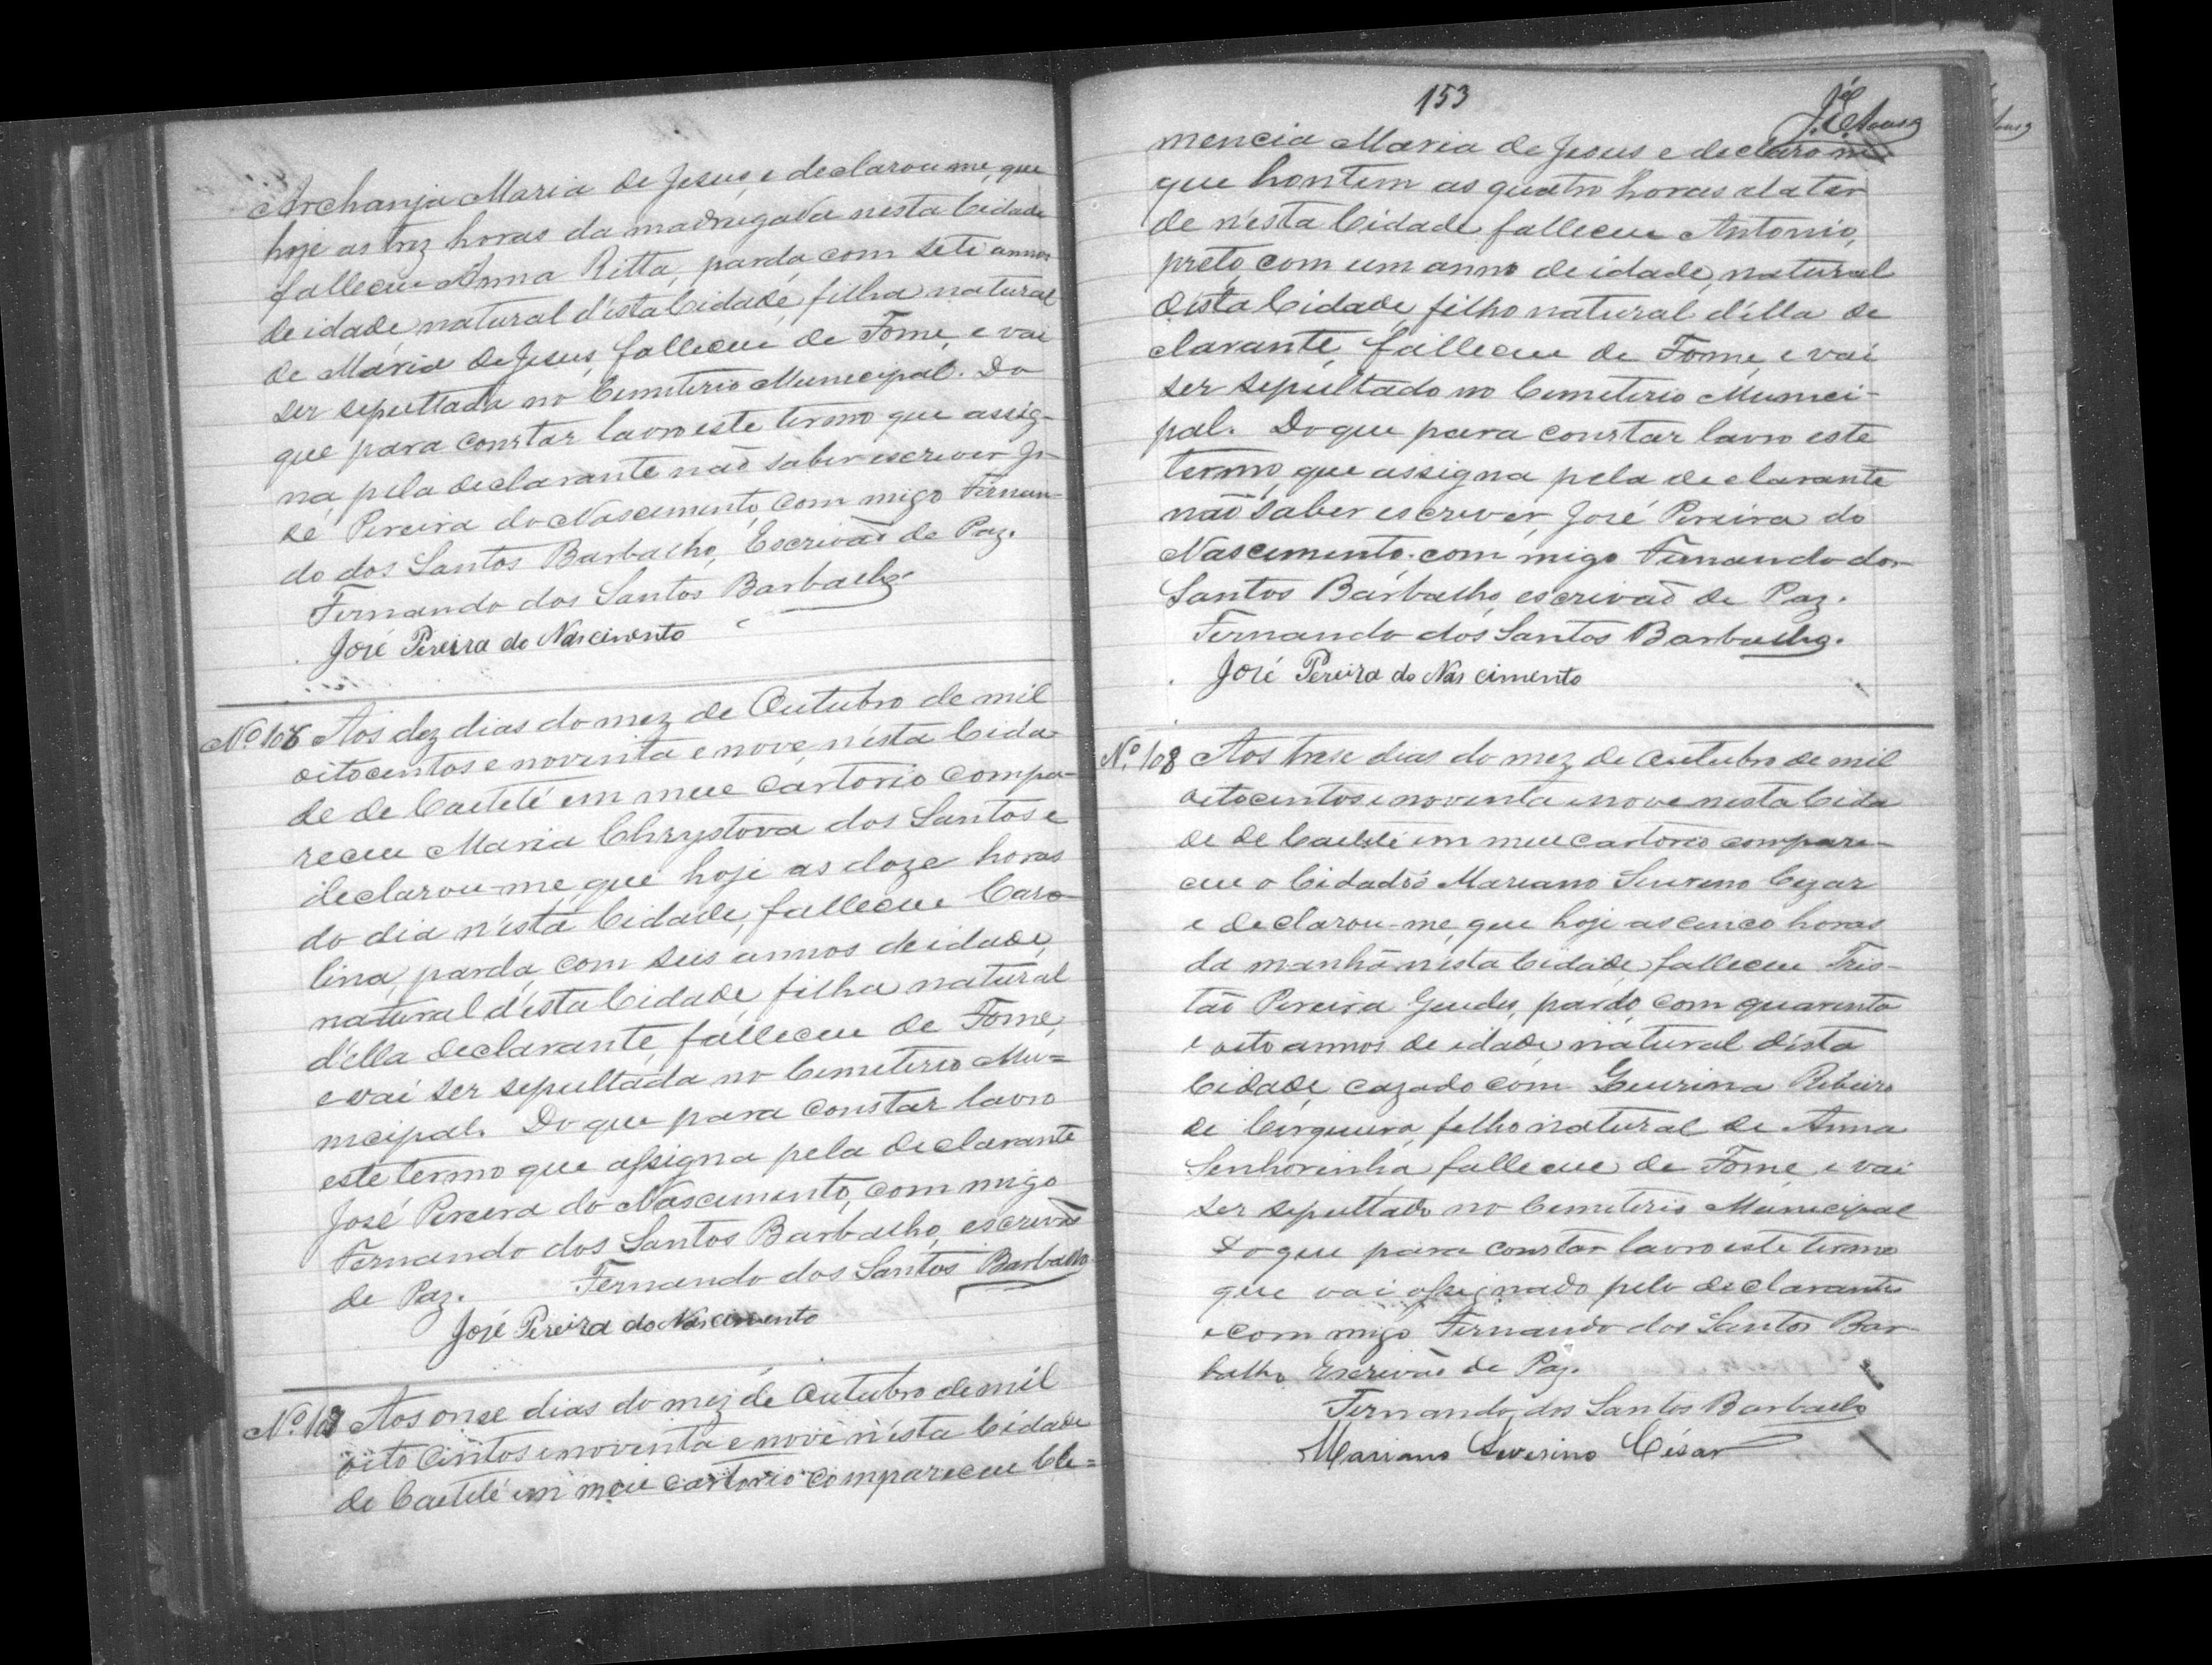 Archanja Maria de Jesus, e declarou me, que
hoje as trez horas da madrugada nesta Cidade
falleceu Anna Ritta, parda com sete annos
de idade, natural d'ésta Cidade, filha natural
de Maria de Jesus, falleceu de Fome, e vai
ser sepultada no Cemiterio Municipal. Do
que para constar lavro este termo que assig-
na, pela declarante não saber escrever Jo-
sé Pereira do Nascimento, com migo Fernan-
do dos Santos Barbalho, Escrivão de Paz.
Fernando dos Santos Barbalho.
José Pereira do Nascimento
Nº 106 Aos dez dias do mez de Outubro de mil
oitocentos e noventa e nove, n'ésta Cida-
de de Caeteté em meu cartorio compa-
receu Maria Chrystova dos Santos e
declarou-me, que hoje as doze horas
do dia n'ésta Cidade, falleceu Caro-
lina, parda, com seis annos de idade,
natural d'ésta Cidade, filha natural
d'élla declarante, falleceu de Fome,
e vai ser sepultada no Cemiterio Mu=
nicipal. Do que para constar lavro
este termo que assigna pela declarante
José Pereira do Nascimento, com migo
Fernando dos Santos Barbalho, escrivão
de Paz. Fernando dos Santos Barbalho
José Pereira do Nascimento
Nº 107 Aos onse dias do mez de Outubro de mil
oito centos e noventa e nove n'ésta Cidade
de Caeteté em meu cartorio compareceu Cle=
153
mencia Maria de Jesus e declaro me
que hontem as quatro horas da tar
de n'ésta Cidade falleceu Antonio,
preto, com um anno de idade, natural
d'ésta Cidade, filho natural d'élla de
clarante, falleceu de Fome, e vai
ser sepultado no Cemiterio Munici-
pal. Do que para constar lavro este
termo, que assigna pela declarante
não saber escrever, José Pereira do
Nascimento, com migo Fernando dos
Santos Barbalho, escrivão de Paz.
Fernando dos Santos Barbalho.
José Pereira do Nascimento
Nº 108 Aos trese dias do mez de Outubro de mil
oitocentos e noventa e nove nesta Cida
de de Caeteté em meu cartorio compare-
ceu o Cidadão Mariano Severino Cezar
e declarou-me, que hoje as cinco horas
da manhã nésta Cidade, falleceu Tris-
tão Pereira Guedes, pardo, com quarenta
e oito annos de idade, natural désta
Cidade, cazado com Ribeiro
de Cirqueira, filho natural de Anna
Senhorinha, falleceu de Fome, e vai
ser sepultado no Cemiterio Municipal
Do que para constar lavro este termo
que vai assignado pelo declarante
e com migo Fernando dos Santos Bar-
balho Escrivão de Paz.
Fernando dos Santos Barbalho
Mariano Severino César